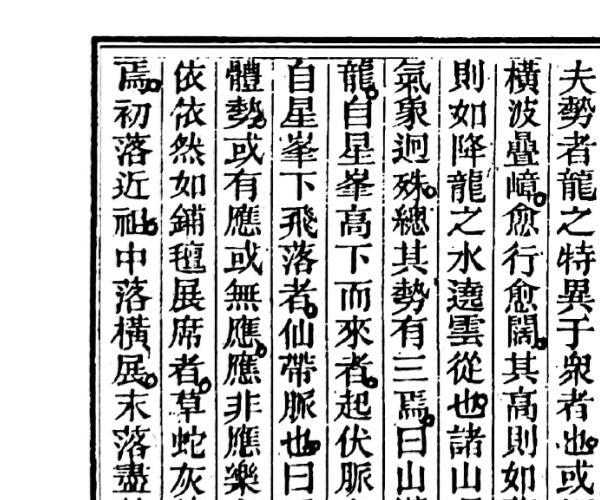 夫勢者龍之特異于衆者也。或
橫波疊嶂。愈行愈闊。其高則如
則如降龍之水遶雲從也。諸山
氣象迥殊。總其勢有三焉。曰山
龍。自星峯高下而來者。起伏脈
自星峯下飛落者。仙帶脈也。曰
體勢。或有應或無應。應非應樂
依依然如鋪氊展席者。草蛇灰
焉。初落近祖。中落橫展。末落盡